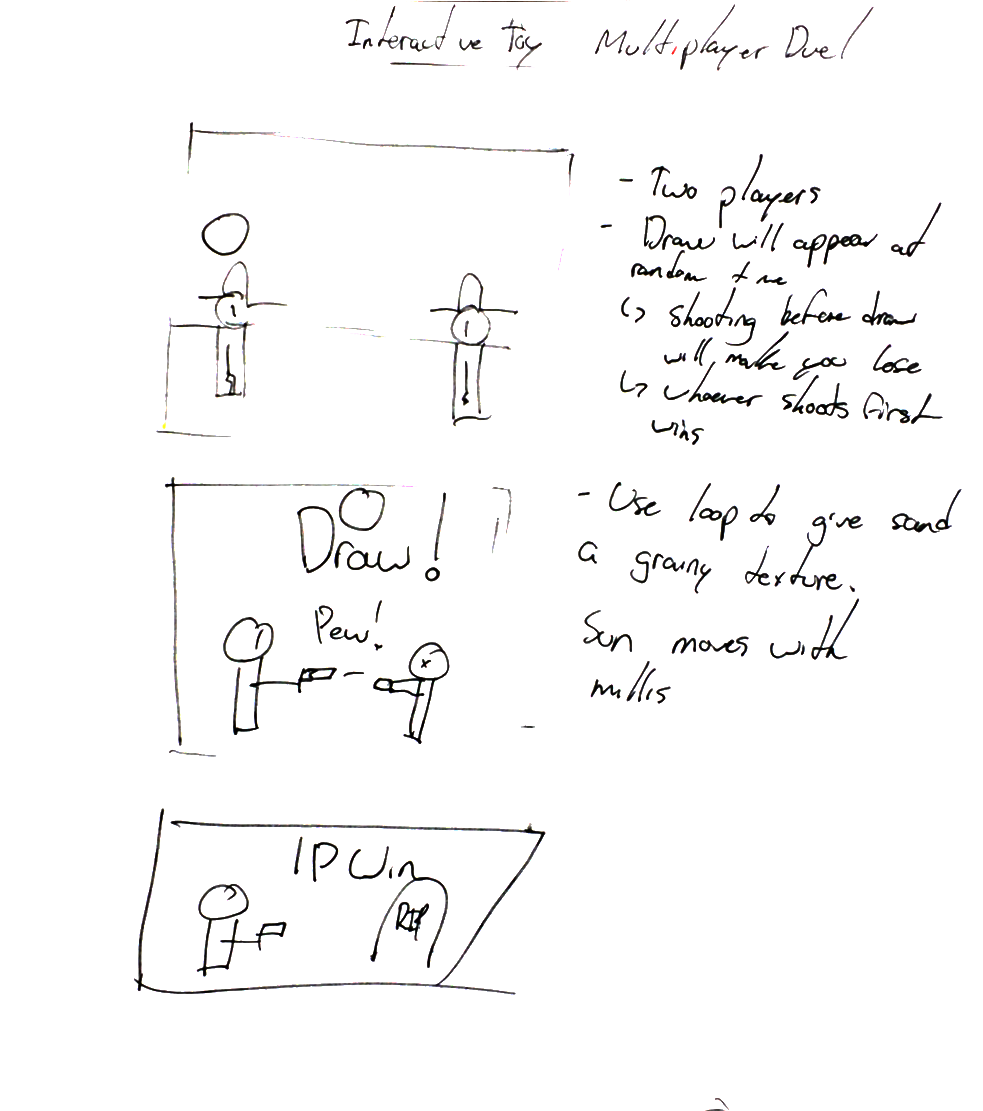 Interactive Toy Multiplayer Duel
- Two players
- Draw will appear at
random time
↳ shooting before draw
will make you lose
↳ whoever shoots first
wins
Draw!
Pew!
- Use loop to give sand
a grainy texture.
Sun moves with
millis
1P Win
RIP